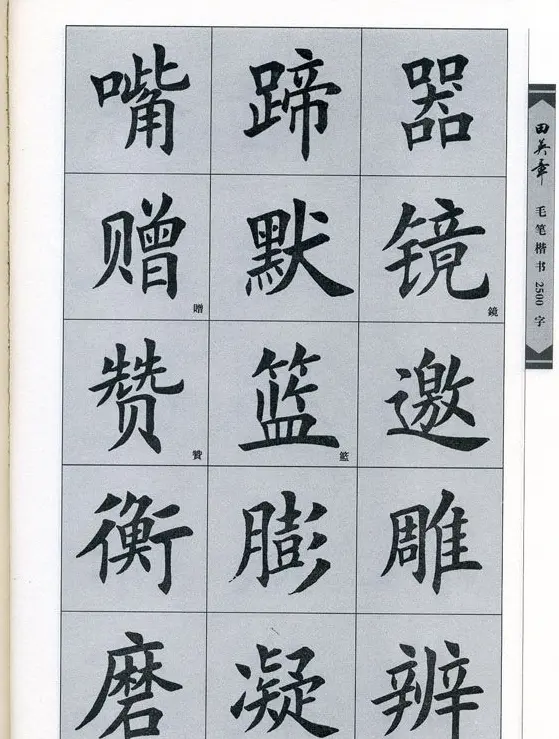 嘴 蹄 器
赠 默 镜
贈 鏡
赞 篮 邀
贊 籃
衡 膨 雕
磨 凝 辨
田英章 毛笔楷书2500字